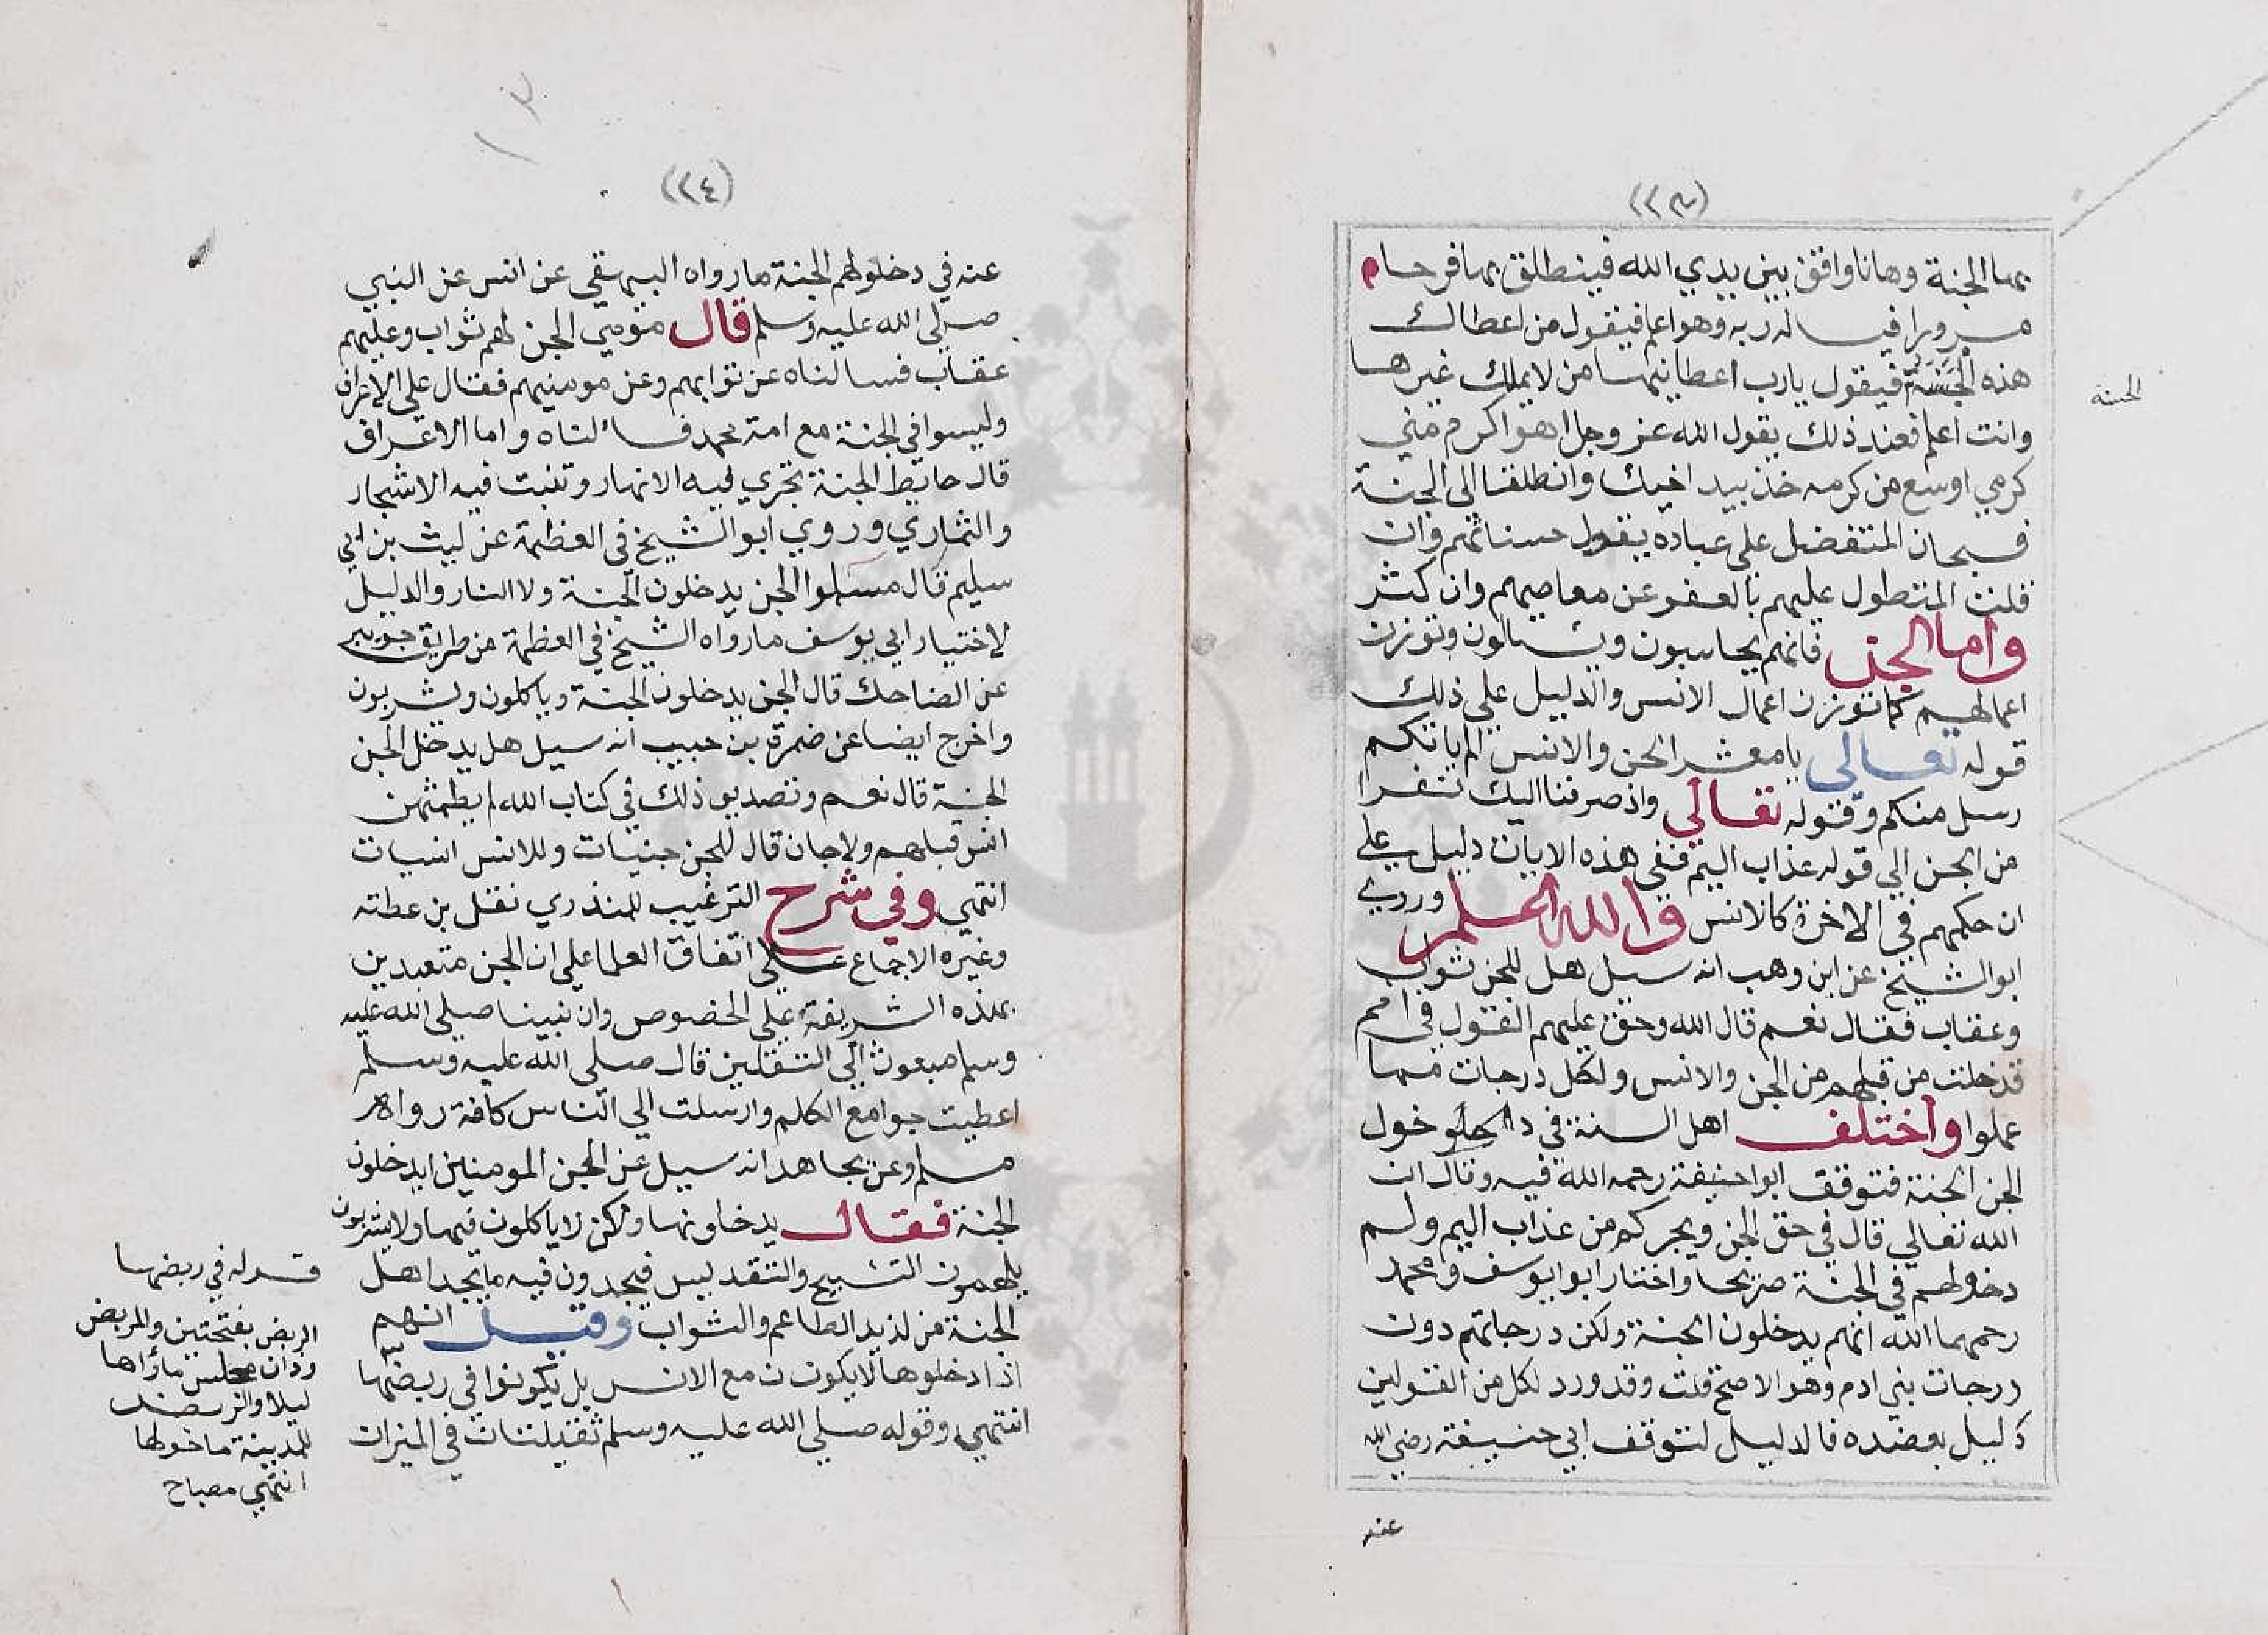 (٢٢٣)
بها الجنة وهانا واقف بين يدي الله فينطلق بها فرحام
مسرورا فيساله ربه وهو اعلم فيقول من اعطاك
هذه الحسنة فيقول يارب اعطانيها من لا يملك غيرها
وانت اعلم فعند ذلك يقول الله عز وجل اهو اكرم مني
كرمي اوسع من كرمه خذ بيد اخيك وانطلقا الى الجنة
فسبحان المتفضل على عباده بقبول حسناتهم وان
قلت المتطول عليهم بالعفو عن معاصيهم وان كثر
واما الجن فانهم يحاسبون ويسالون وتوزن
اعمالهم كما توزن اعمال الانس والدليل علي ذلك
قوله تعالي يا معشر الجن والانس الم ياتكم
رسل منكم وقوله تعالي واذ صرفنا اليك نفرا
من الجن الي قوله عذاب اليم ففي هذه الايات دليل علي
ان حكمهم في الاخرة كالانس والله اعلم وروي
ابو الشيخ عن ابن وهب انه سيل هل للجن ثواب
وعقاب فقال نعم قال الله وحق عليهم القول في امم
قد خلت من قبلهم من الجن والانس ولكل درجات مما
عملوا واختلف اهل السنة في دخول
الجن الجنة فتوقف ابو احنيفة رحمه الله فيه وقال ان
الله تعالي قال في حق الجن ويجركم من عذاب اليم ولم
دخولهم في الجنة صريحا واختار ابو ايوسف ومحمد
رحمهما الله انهم يدخلون الجنة ولكن درجاتهم دون
درجات بني ادم وهو الاصح قلت وقد ورد لكل من القولين
دليل بعضده فالدليل لتوقف ابي حنيفة رضي الله
عنه
الحسنة
١٣
(٢٢٤)
عنه في دخولهم الجنة ما رواه البيهقي عن انس عن النبي
صلي الله عليه وسلم قال مومني الجن لهم ثواب وعليهم
عقاب فسالناه عن ثوابهم وعن مومنيهم فقال علي الاعراف
وليسوا في الجنة مع امة محمد فسالناه وما الاعراف
قال حايط الجنة تجري فيه الانهار وتنبت فيه الاشجار
والثماري وروي ابو الشيخ في العظمة عن ليث بن ابي
سليم قال مسلموا الجن يدخلون الجنة ولا النار والدليل
لاختيار ابي يوسف ما رواه الشيخ في العظمة من طريق جويبر
عن الضاحك قال الجن يدخلون الجنة وياكلون ويشربون
واخرج ايضا عن ضمرة بن حبيب انه سيل هل يدخل الجن
الجنة قال نعم وتصديق ذلك في كتاب الله لم يطمثهن
انس قبلهم ولا جان قال للجن جنيات وللانس انسيات
انتهي وفي شرح الترغيب للمنذري نقل بن عطته
وغيره الاجماع علي اتفاق العلما علي ان الجن متعبدين
بهذه الشريعة علي الخصوص وان نبينا صلي الله عليه
وسلم مبعوث الي الثقلين قال صلي الله عليه وسلم
اعطيت جوامع الكلم وارسلت الي الناس كافة رواه
مسلم وعن مجاهد انه سيل عن الجن المومنين ايدخلون
الجنة فقال يدخلونها ولكن لا ياكلون فيها ولا يشربون
يلهمون التسبيح والتقديس فيجدون فيه ما يجد اهل
الجنة من لذيذ الطاعم والشواب وقيل انهم
اذا دخلوها لا يكون ن مع الانس بل يكونوا في ربضها
انتهي وقوله صلي الله عليه وسلم ثقيلتان في الميزان
قوله في ربضها
الربض بفتحتين والمربض
وزان مجلس ماواها
ليلا والربض
للمدينة ما حولها
انتهي مصباح